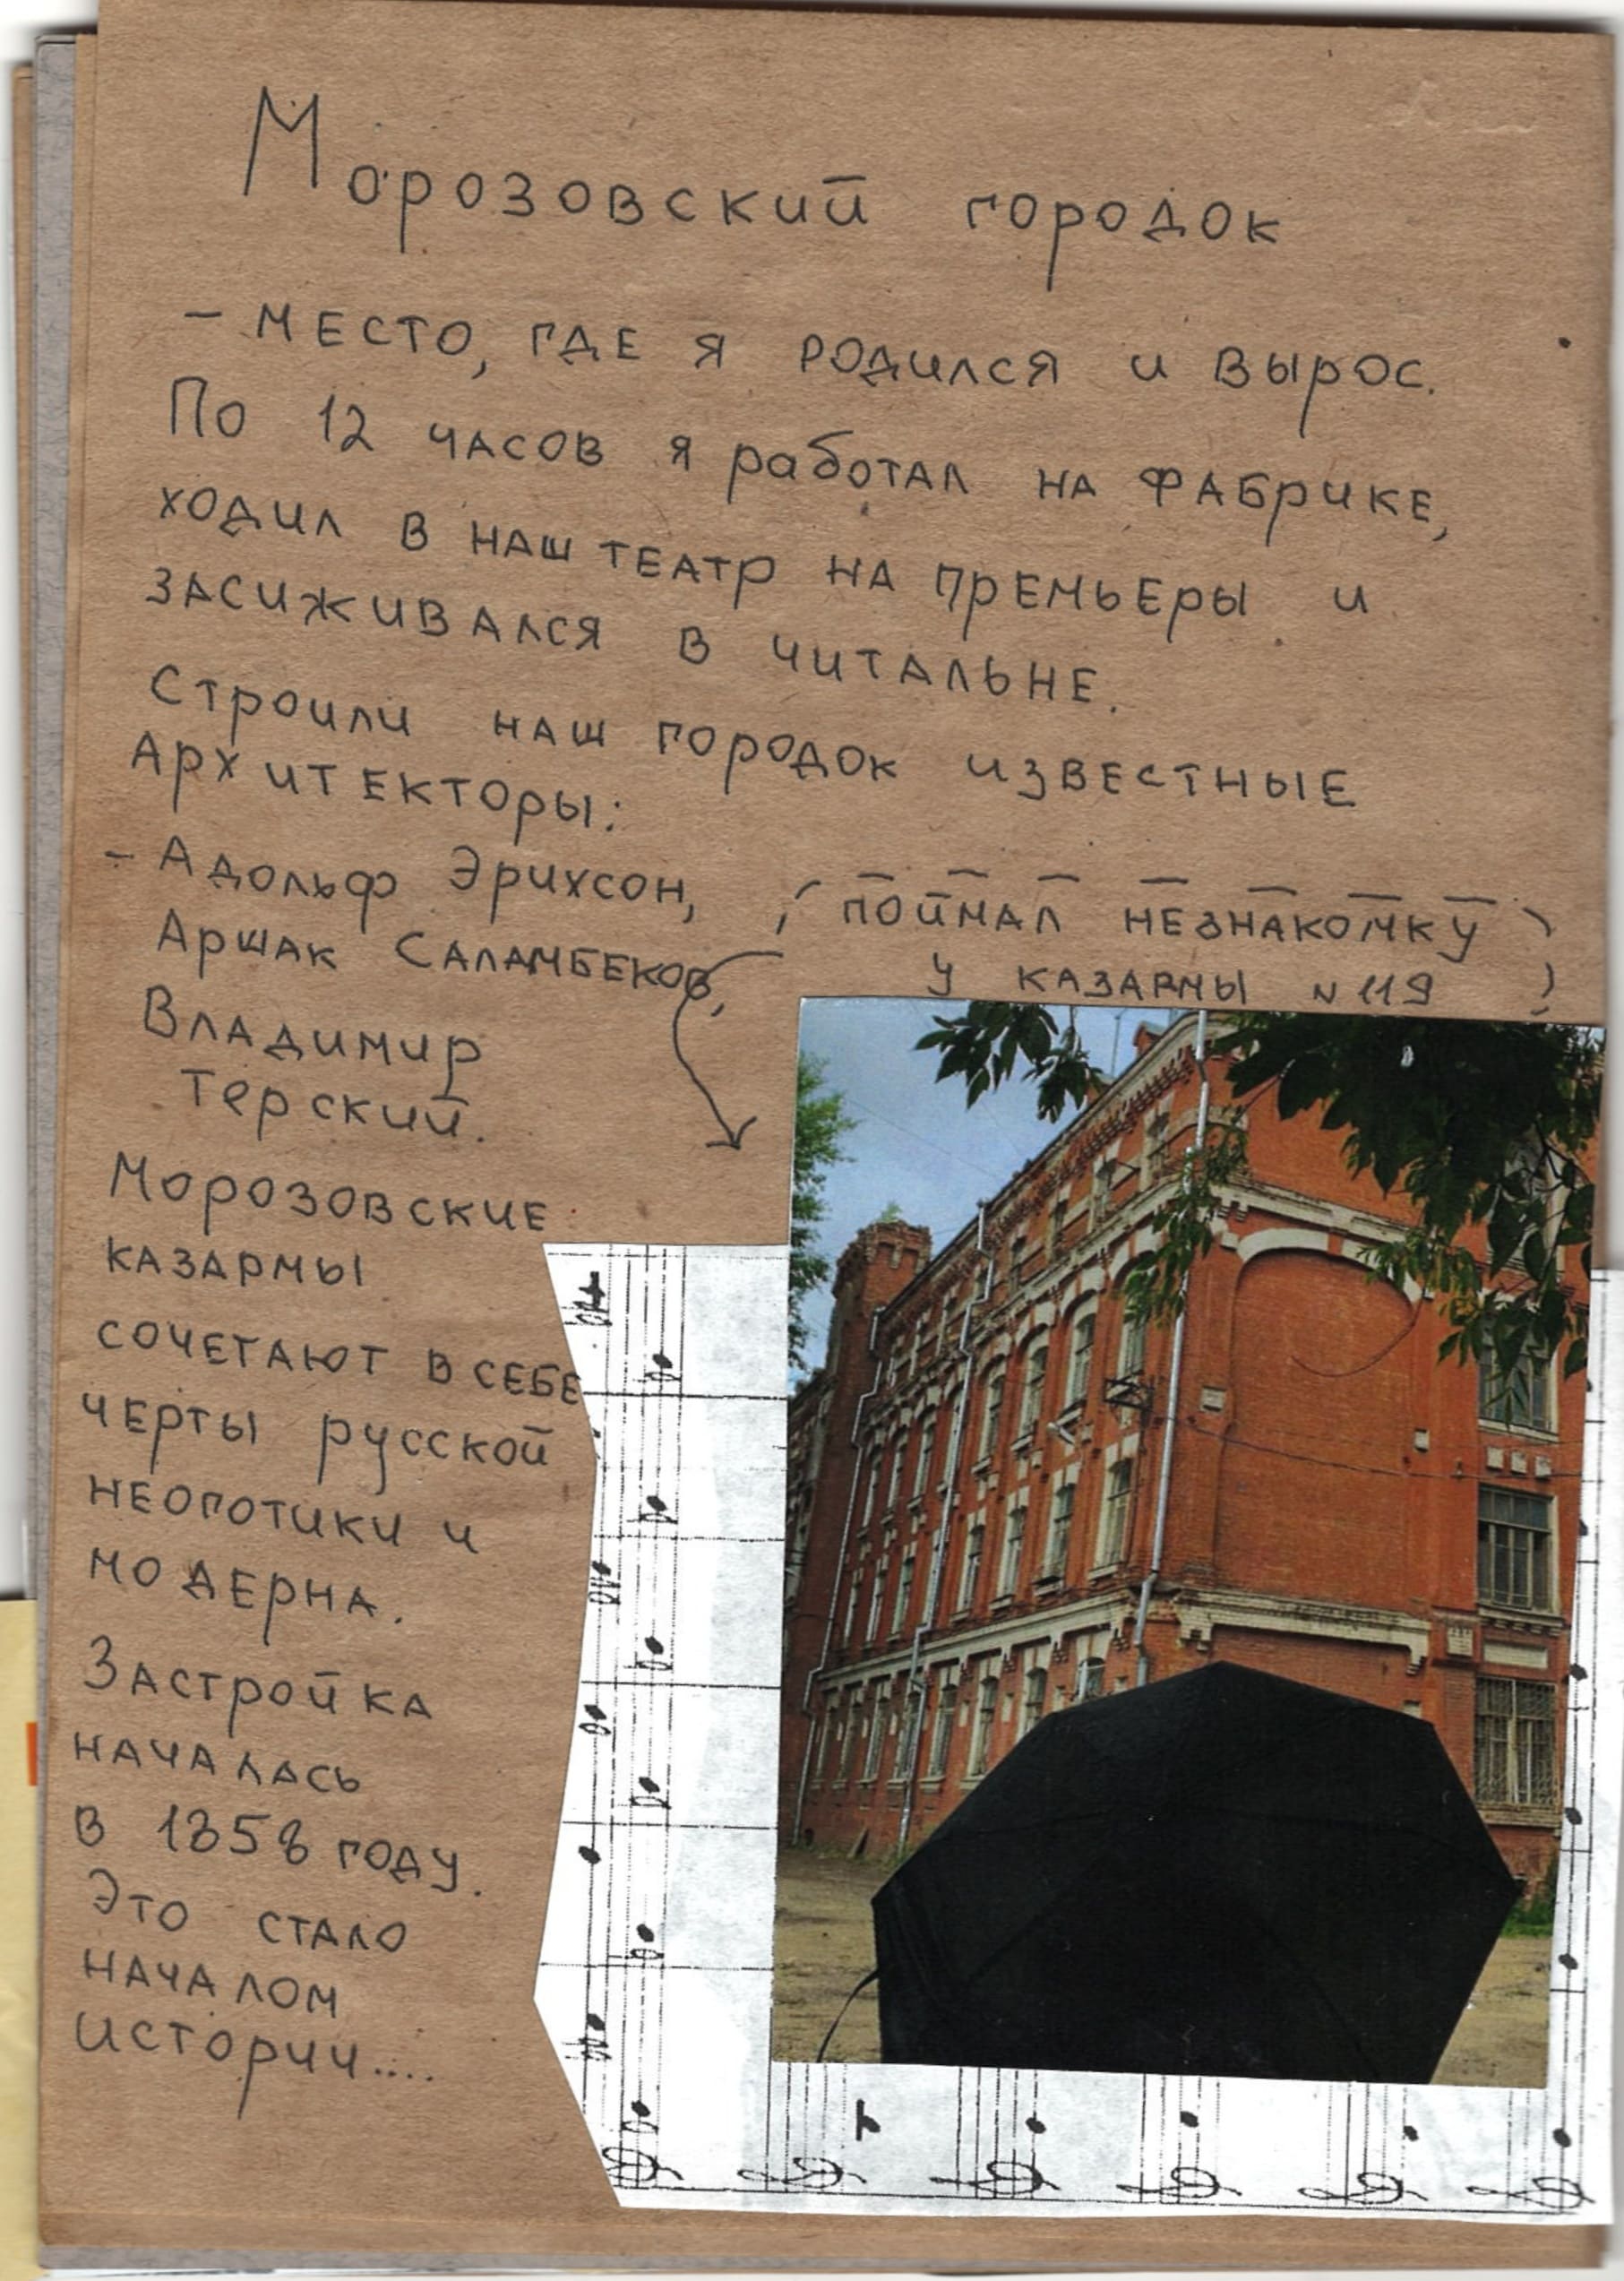 Морозовский городок
- место, где я родился и вырос.
По 12 часов я работал на фабрике,
ходил в наш театр на премьеры и
засиживался в читальне.
Строили наш городок известные
Архитекторы:
- Адольф Эрихсон,
Аршак Саламбеков,
Владимир
Терский.
поймал незнакомку
у казармы №119
Морозовские
казармы
сочетают в себе
черты русской
неоготики и
модерна.
Застройка
началась
в 1858 году.
Это стало
началом
истории....